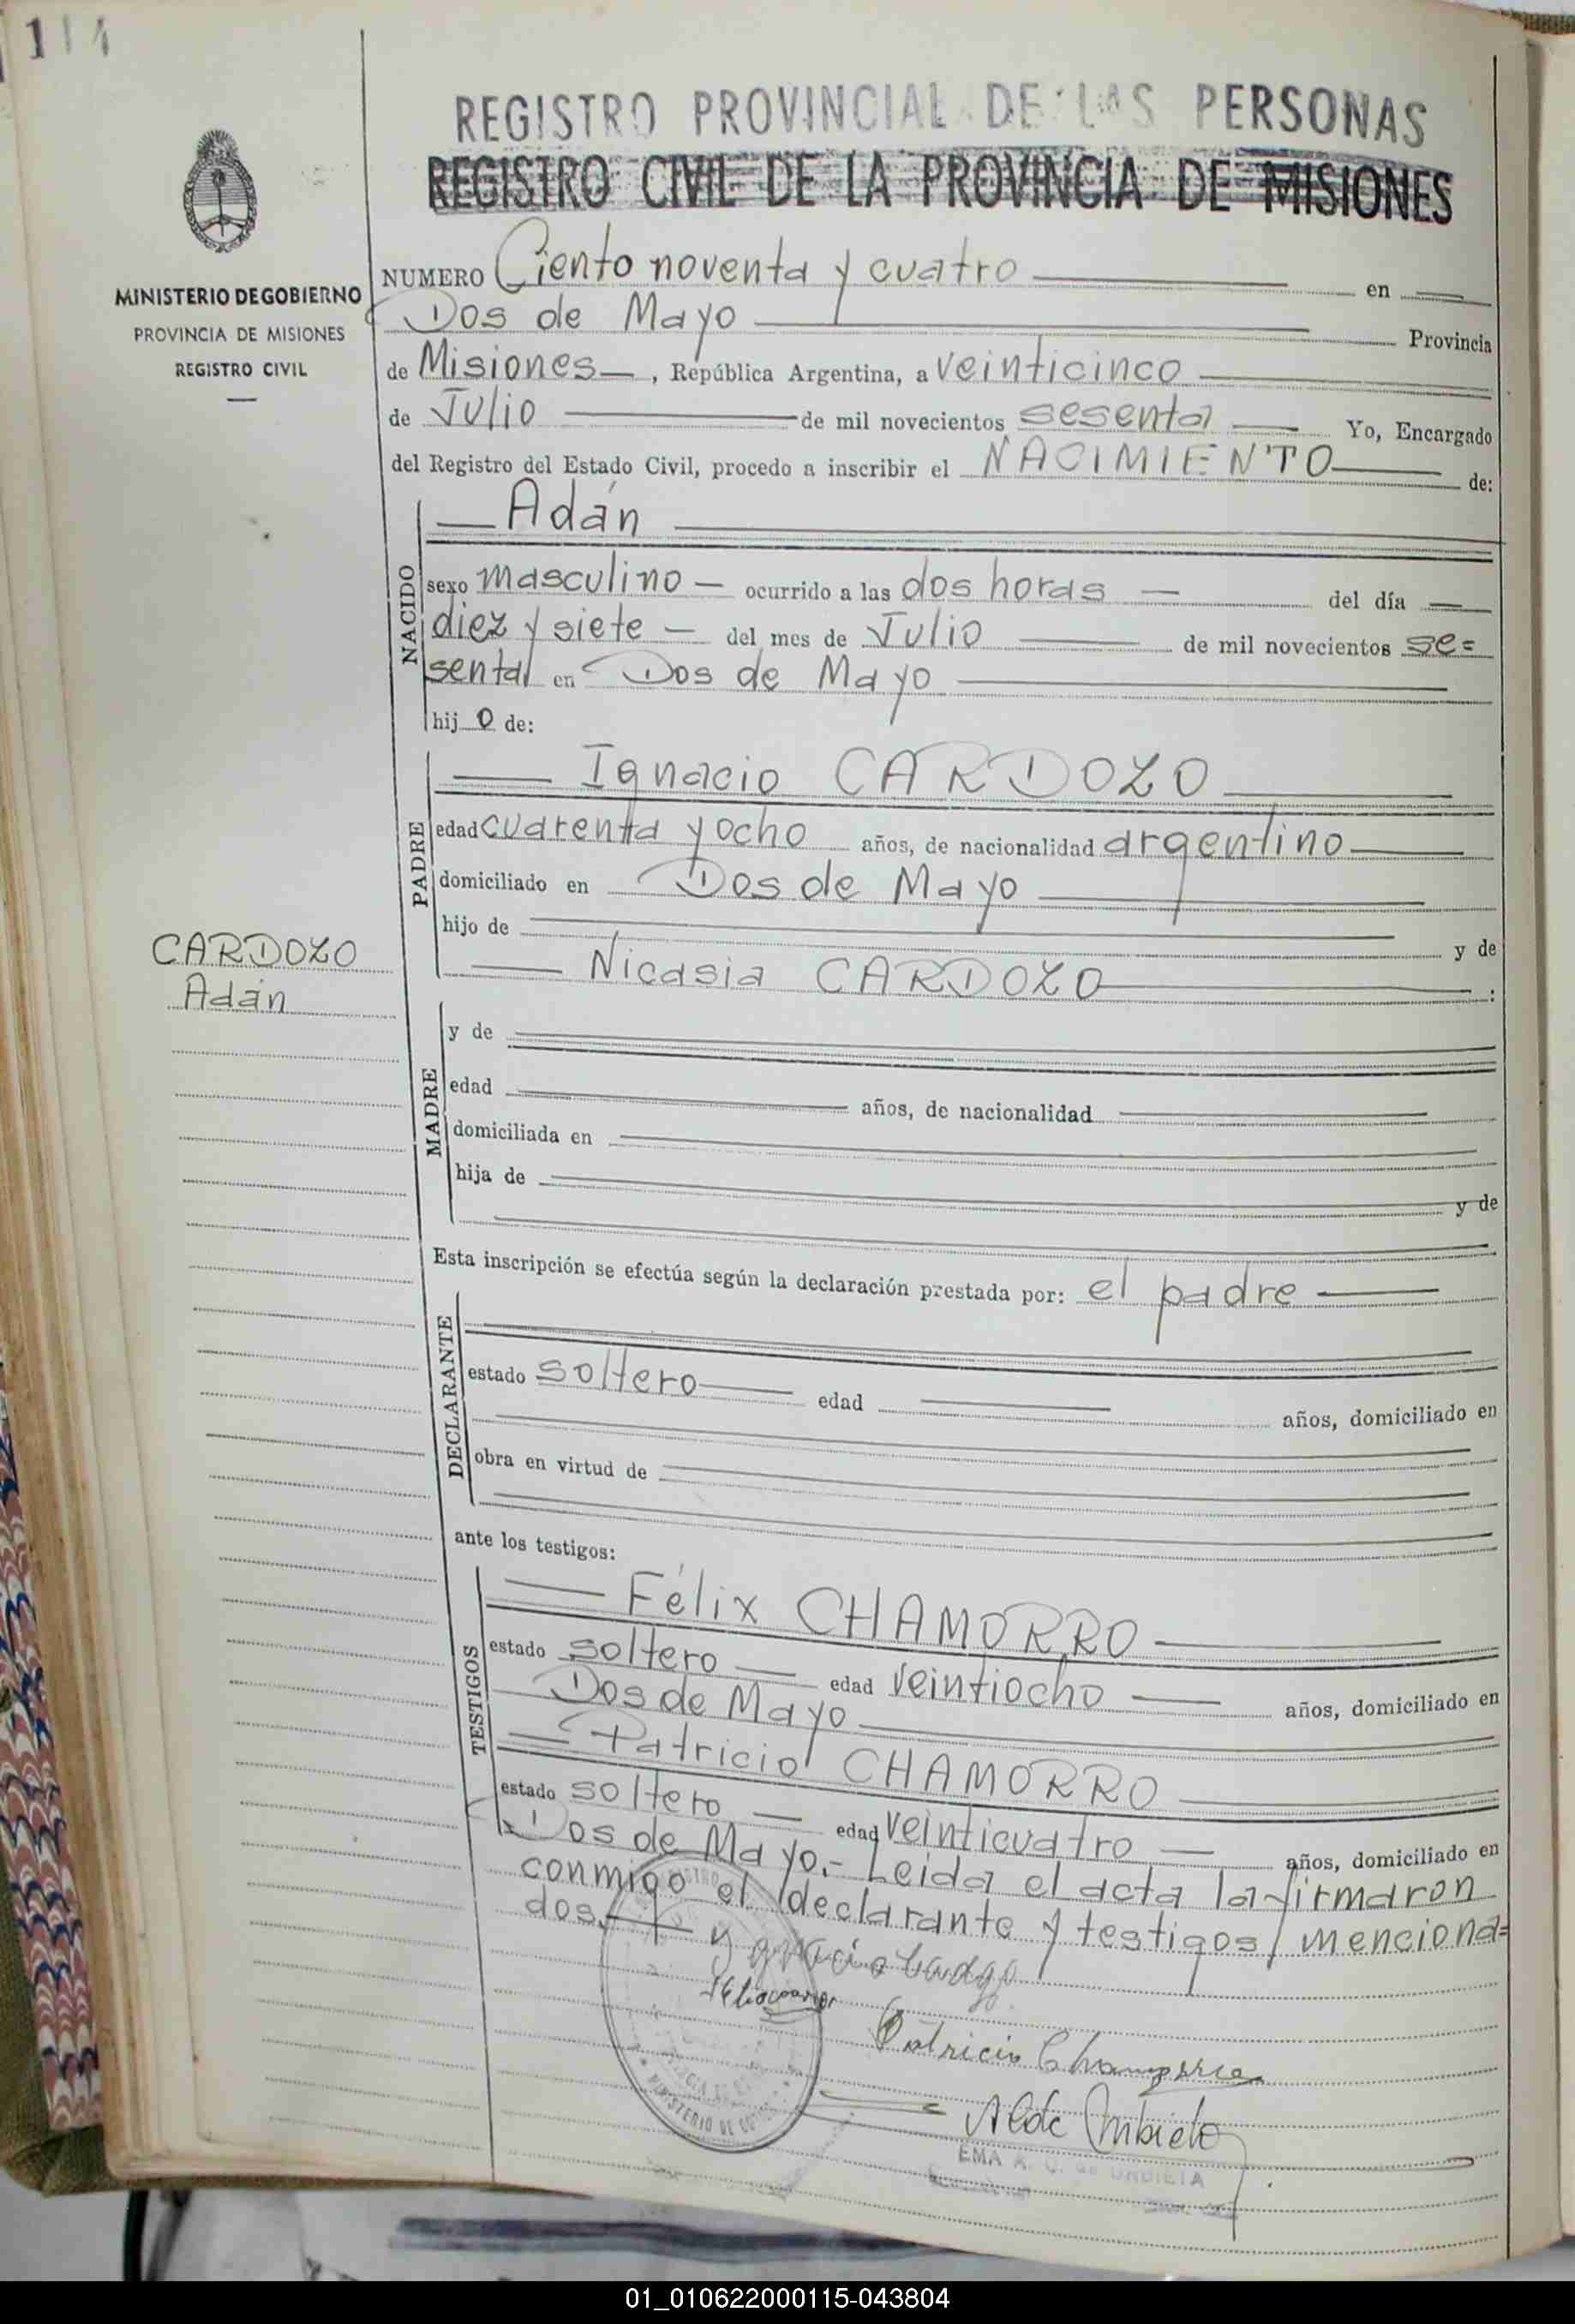 114
REGISTRO PROVINCIAL DE LAS PERSONAS
REGISTRO CIVIL DE LA PROVINCIA DE MISIONES
MINISTERIO DE GOBIERNO
PROVINCIA DE MISIONES
REGISTRO CIVIL
NUMERO Ciento noventa y cuatro en
Dos de Mayo Provincia
de Misiones, República Argentina, a veinticinco
de Julio de mil novecientos sesenta Yo, Encargado
del Registro del Estado Civil, procedo a inscribir el NACIMIENTO de:
NACIDO
Adán
sexo masculino ocurrido a las dos horas del día
diez y siete del mes de Julio de mil novecientos se=
senta en Dos de Mayo
hijo de:
PADRE
Ignacio CARDOZO
edad cuarenta y ocho años, de nacionalidad argentino
domiciliado en Dos de Mayo
hijo de y de
Nicasia CARDOZO :
CARDOZO
Adán
MADRE
y de
edad años, de nacionalidad
domiciliada en
hija de y de
Esta inscripción se efectúa según la declaración prestada por: el padre
DECLARANTE
estado soltero edad años, domiciliado en
obra en virtud de
ante los testigos:
TESTIGOS
Félix CHAMORRO
estado soltero edad veintiocho años, domiciliado en
Dos de Mayo
Patricio CHAMORRO
estado soltero edad veinticuatro años, domiciliado en
Dos de Mayo.- Leida el acta la firmaron
conmigo el declarante y testigos menciona=
dos.
Patricio Chamorro
MINISTERIO DE
EMA A.
01_010622000115-043804